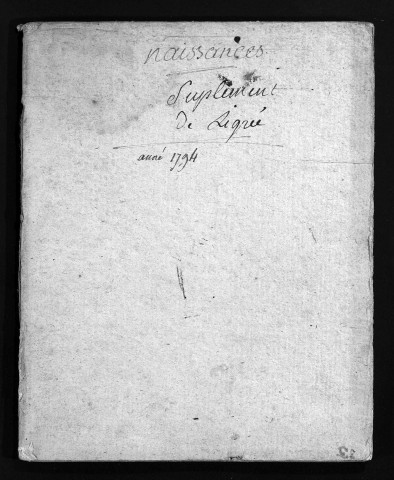 naissances
Suplément
De Ligré
année 1794